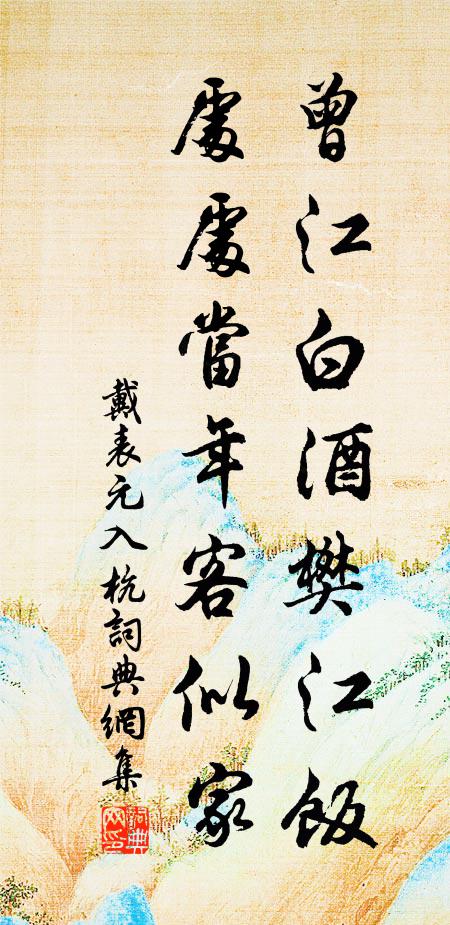 曾江白酒樊江飯
處處當年客似家
戴表元入杭詞典網集